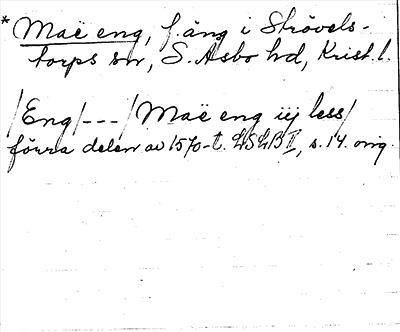 * Maë eng, f. äng i Strövels-
torps sn, S. Åsbo hd, Krist. l.
/Eng/---/Maë eng iij less/
förra delen av 1570-t. LSLB II, s. 14. orig.